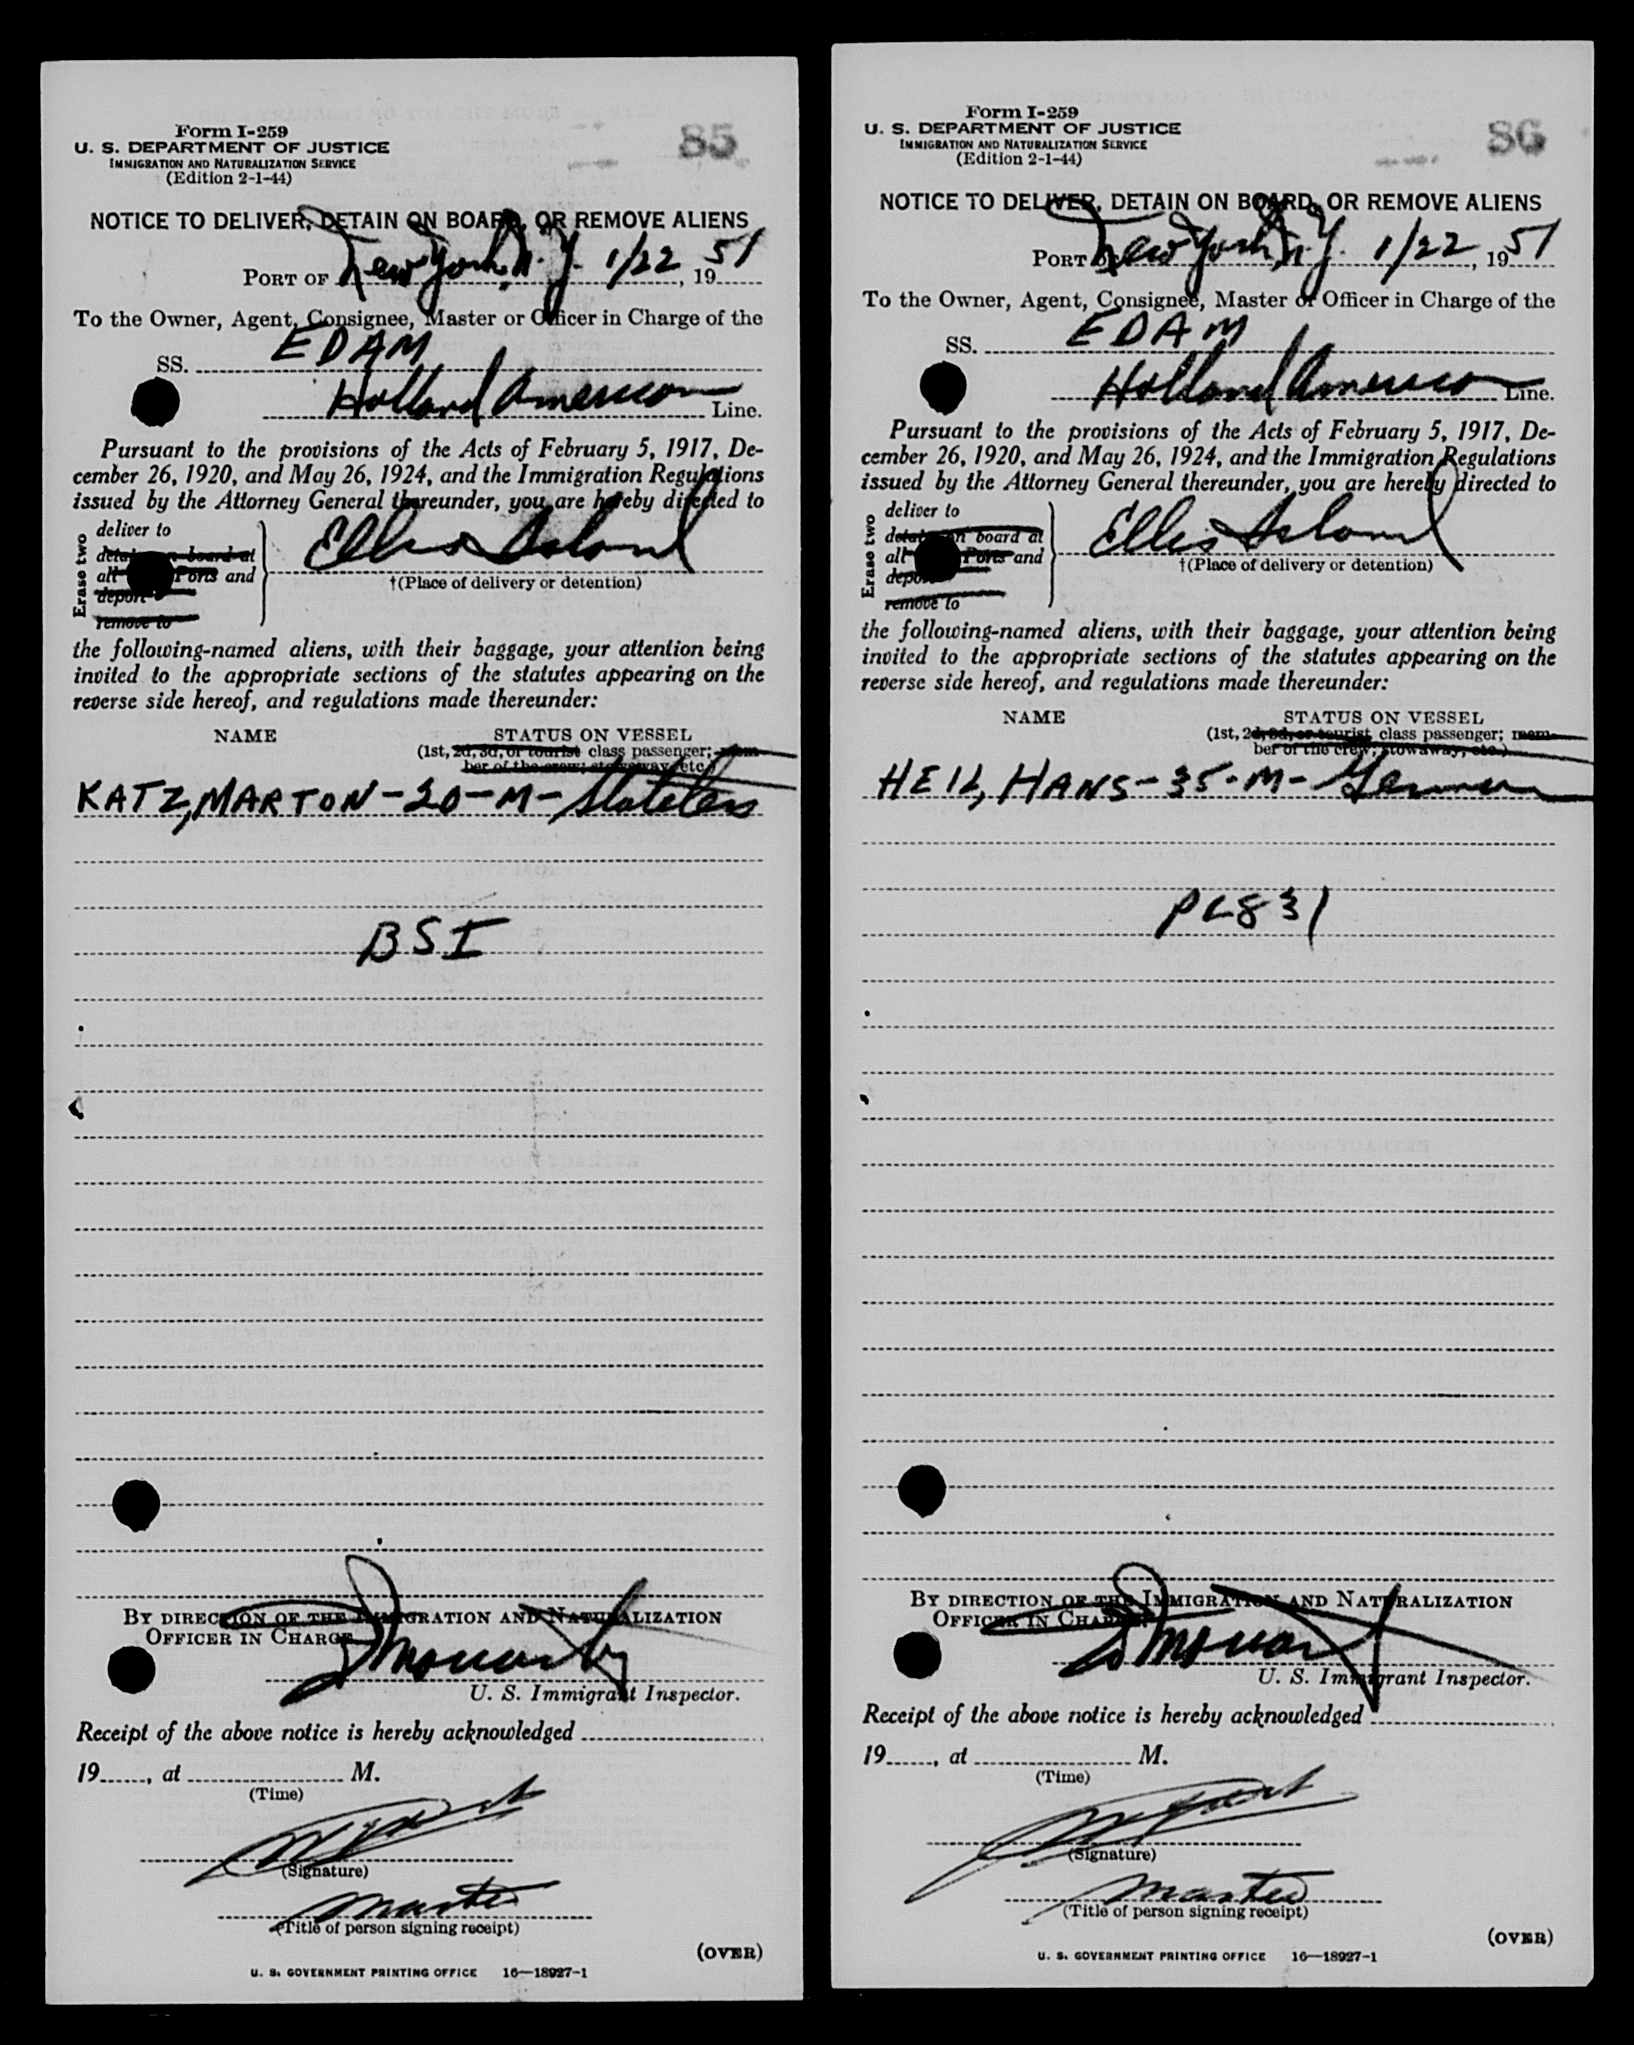 85
Form I-259
U. S. DEPARTMENT OF JUSTICE
IMMIGRATION AND NATURALIZATION SERVICE
(Edition 2-1-44)
NOTICE TO DELIVER, DETAIN ON BOARD, OR REMOVE ALIENS
PORT OF New York, N.Y. 1/22, 1951
To the Owner, Agent, Consignee, Master or Officer in Charge of the
SS. EDAM
Holland American Line.
Pursuant to the provisions of the Acts of February 5, 1917, De-
cember 26, 1920, and May 26, 1924, and the Immigration Regulations
issued by the Attorney General thereunder, you are hereby directed to
Erase two
deliver to
detain on board at
all Ports and
deport
remove to
Ellis Island
†(Place of delivery or detention)
the following-named aliens, with their baggage, your attention being
invited to the appropriate sections of the statutes appearing on the
reverse side hereof, and regulations made thereunder:
NAME STATUS ON VESSEL
(1st, 2d, 3d, or tourist class passenger; mem-
ber of the crew; stowaway, etc.)
KATZ, MARTON - 20 - M - Stateless
BSI
BY DIRECTION OF THE IMMIGRATION AND NATURALIZATION
OFFICER IN CHARGE
U. S. Immigrant Inspector.
Receipt of the above notice is hereby acknowledged
19 , at M.
(Time)
(Signature)
Master
(Title of person signing receipt)
(OVER)
U. S. GOVERNMENT PRINTING OFFICE 16—18927-1
86
Form I-259
U. S. DEPARTMENT OF JUSTICE
IMMIGRATION AND NATURALIZATION SERVICE
(Edition 2-1-44)
NOTICE TO DELIVER, DETAIN ON BOARD, OR REMOVE ALIENS
PORT OF New York, N.Y. 1/22, 1951
To the Owner, Agent, Consignee, Master or Officer in Charge of the
SS. EDAM
Holland American Line.
Pursuant to the provisions of the Acts of February 5, 1917, De-
cember 26, 1920, and May 26, 1924, and the Immigration Regulations
issued by the Attorney General thereunder, you are hereby directed to
Erase two
deliver to
detain on board at
all Ports and
deport
remove to
Ellis Island
†(Place of delivery or detention)
the following-named aliens, with their baggage, your attention being
invited to the appropriate sections of the statutes appearing on the
reverse side hereof, and regulations made thereunder:
NAME STATUS ON VESSEL
(1st, 2d, 3d, or tourist class passenger; mem-
ber of the crew; stowaway, etc.)
HEIL, HANS - 35 - M - German
PL831
BY DIRECTION OF THE IMMIGRATION AND NATURALIZATION
OFFICER IN CHARGE
U. S. Immigrant Inspector.
Receipt of the above notice is hereby acknowledged
19 , at M.
(Time)
(Signature)
Master
(Title of person signing receipt)
(OVER)
U. S. GOVERNMENT PRINTING OFFICE 16—18927-1